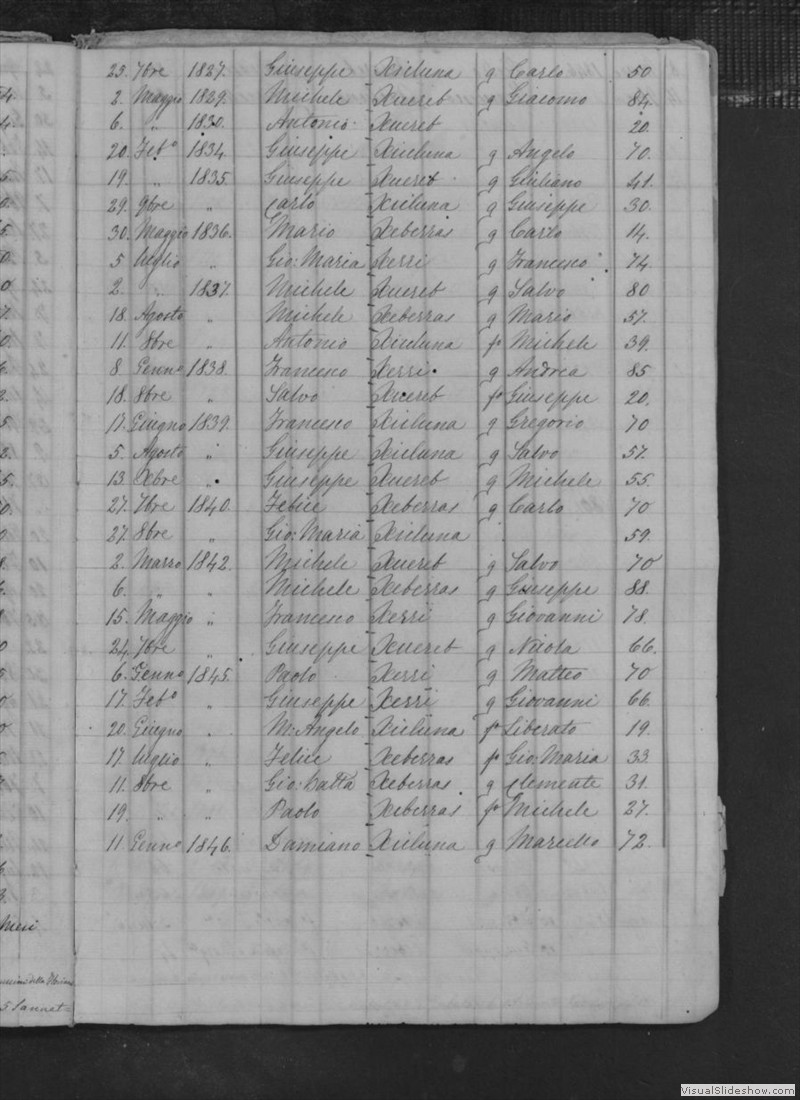 23. 7bre 1827. Giuseppe Xicluna g Carlo 50
2. Maggio 1829. Michele Xuereb g Giacomo 84.
6. " 1830. Antonio Xuereb 20.
20. Feb° 1834. Giuseppe Xicluna g Angelo 70.
19. " 1835. Giuseppe Xuereb g Giuliano 41.
29. 9bre " Carlo Xicluna g Giuseppe 30.
30. Maggio 1836. Mario Xeberras g Carlo 14.
5 luglio " Gio: Maria Xerri g Francesco 74.
2. " 1837. Michele Xuereb g Salvo 80
18. Agosto " Michele Xeberras g Mario 57.
11. 8bre " Antonio Xicluna fo Michele 39.
8. Genno 1838. Francesco Xerri g Andrea 85
18. 8bre " Salvo Xuereb fo Giuseppe 20.
17. Giugno 1839. Francesco Xicluna g Gregorio 70
5. Agosto " Giuseppe Xicluna g Salvo 57.
13. Xbre " Giuseppe Xuereb g Michele 55.
27. 7bre 1840. Felice Xeberras g Carlo 70
27. 8bre " Gio: Maria Xicluna 59.
2. Marzo 1842. Michele Xuereb g Salvo 70
6. " " Michele Xeberras g Giuseppe 88.
15. Maggio " Francesco Xerri g Giovanni 78.
24. 7bre " Giuseppe Xuereb g Nicola 66.
6. Genno 1845. Paolo Xerri g Matteo 70
17. Feb° " Giuseppe Xerri g Giovanni 66.
20. Giugno " M: Angelo Xicluna fo Liberato 19.
17. luglio " Felice Xeberras fo Gio: Maria 33.
11. 8bre " Gio: Batta Xeberras g Clemente 31.
19. " " Paolo Xeberras fo Michele 27.
11 Genno 1846. Damiano Xicluna g Marcello 72.
VisualSlideshow.com